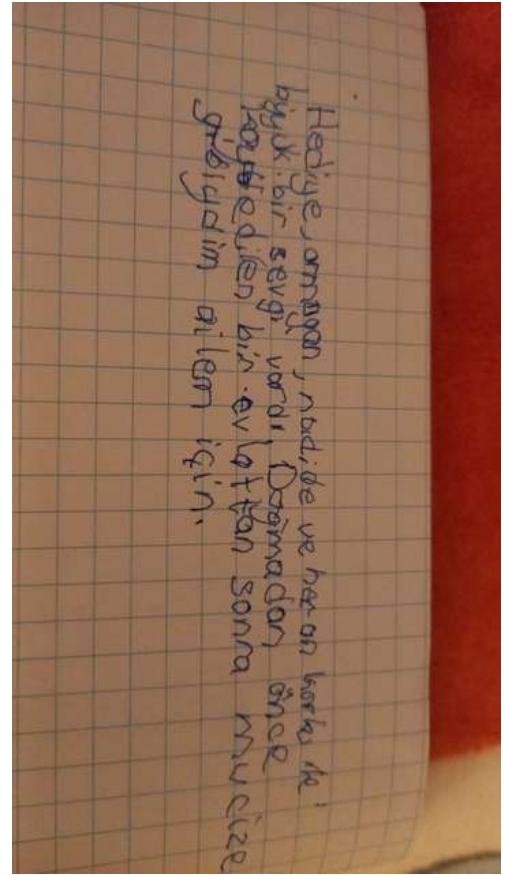 Hediye, armağan, nadide ve her an korku ile
büyük bir sevgi vardı. Doğmadan önce
kaybedilen bir evlattan sonra mucize
gibiydim ailem için.